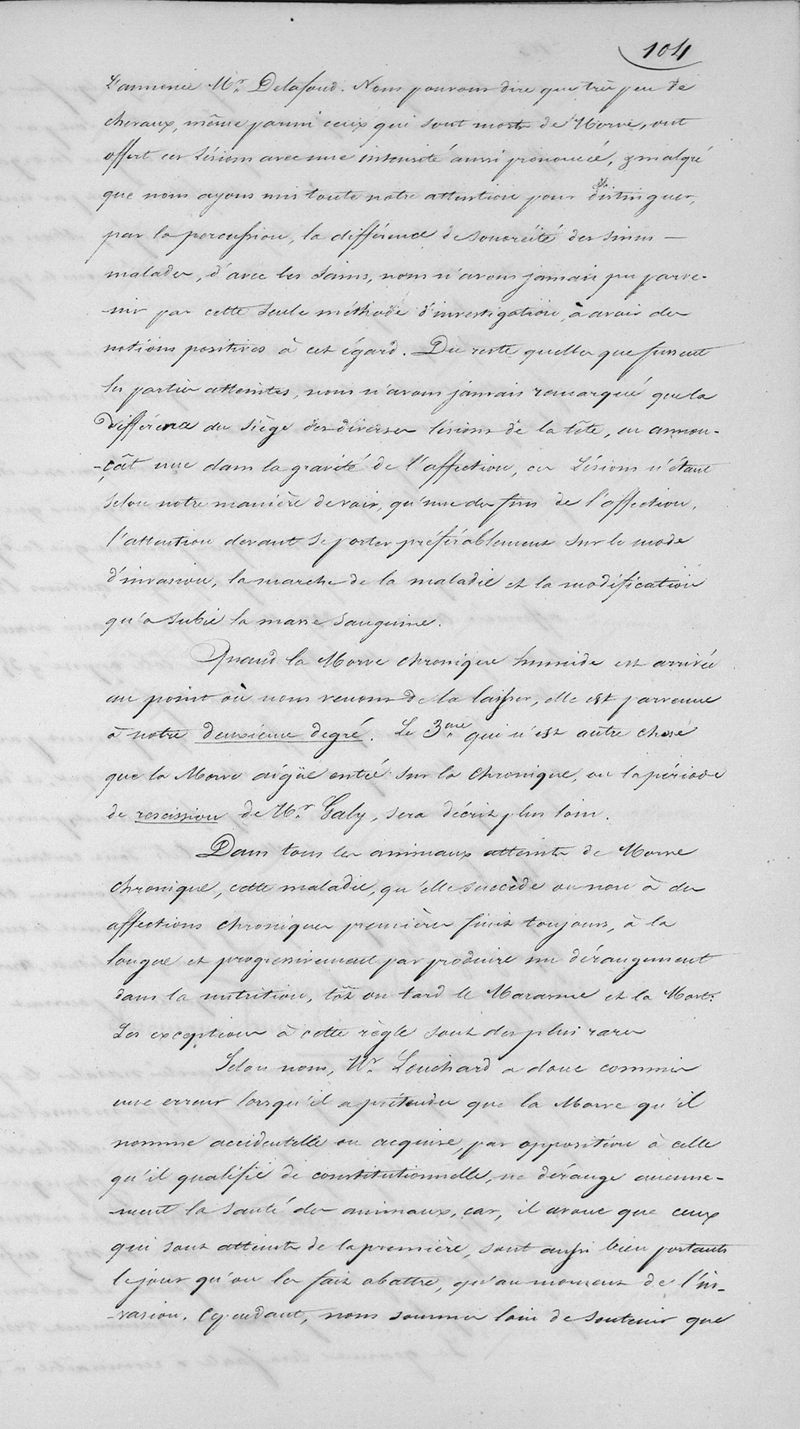 104
l'annonce Mr. Delafond. Nous pouvons dire que très peu de
chevaux, même parmi ceux qui sont morts de Morve, ont
offert ces Lésions avec une intensité aussi prononcée, & malgré
que nous ayons mis toute notre attention pour distinguer,
par la percussion, la différence de sonoréité des sinus —
malades, d'avec les sains, nous n'avons jamais pu parve-
-nir par cette seule méthode d'investigation, à avoir des
notions positives à cet égard. Du reste quelles que fussent
les parties atteintes, nous n'avons jamais remarqué que la
différence du siège des diverses lésions de la tête, en annon-
-çât une dans la gravité de l'affection, ces Lésions n'étant
selon notre manière de voir, qu'une des fins de l'affection,
l'attention devant se porter préférablement sur le mode
d'invasion, la marche de la maladie et la modification
qu'a subie la masse sanguine.
Quand la Morve chronique humide est arrivée
au point où nous venons de la laisser, elle est parvenue
à notre deuxième degré. Le 3ème qui n'est autre chose
que la Morve aigüe entée sur la chronique, ou la période
de rescission de Mr Galy, sera décrit plus loin.
Dans tous les animaux atteints de Morve
chronique, cette maladie, qu'elle succède ou non à des
affections chroniques premières finit toujours, à la
longue et progressivement par produire un dérangement
dans la nutrition, tôt ou tard le Marasme et la Mort.
Les exceptions à cette règle sont des plus rares
Selon nous, Mr. Louchard a donc commis
une erreur lorsqu'il a prétendu que la Morve qu'il
nomme accidentelle ou acquise, par opposition à celle
qu'il qualifie de constitutionnelle, ne dérange aucune-
-ment la santé des animaux, car, il avoue que ceux
qui sont atteints de la première, sont aussi bien portants
le jour qu'on les fait abattre, qu'au moment de l'in-
-vasion. Cependant, nous sommes loin de soutenir que